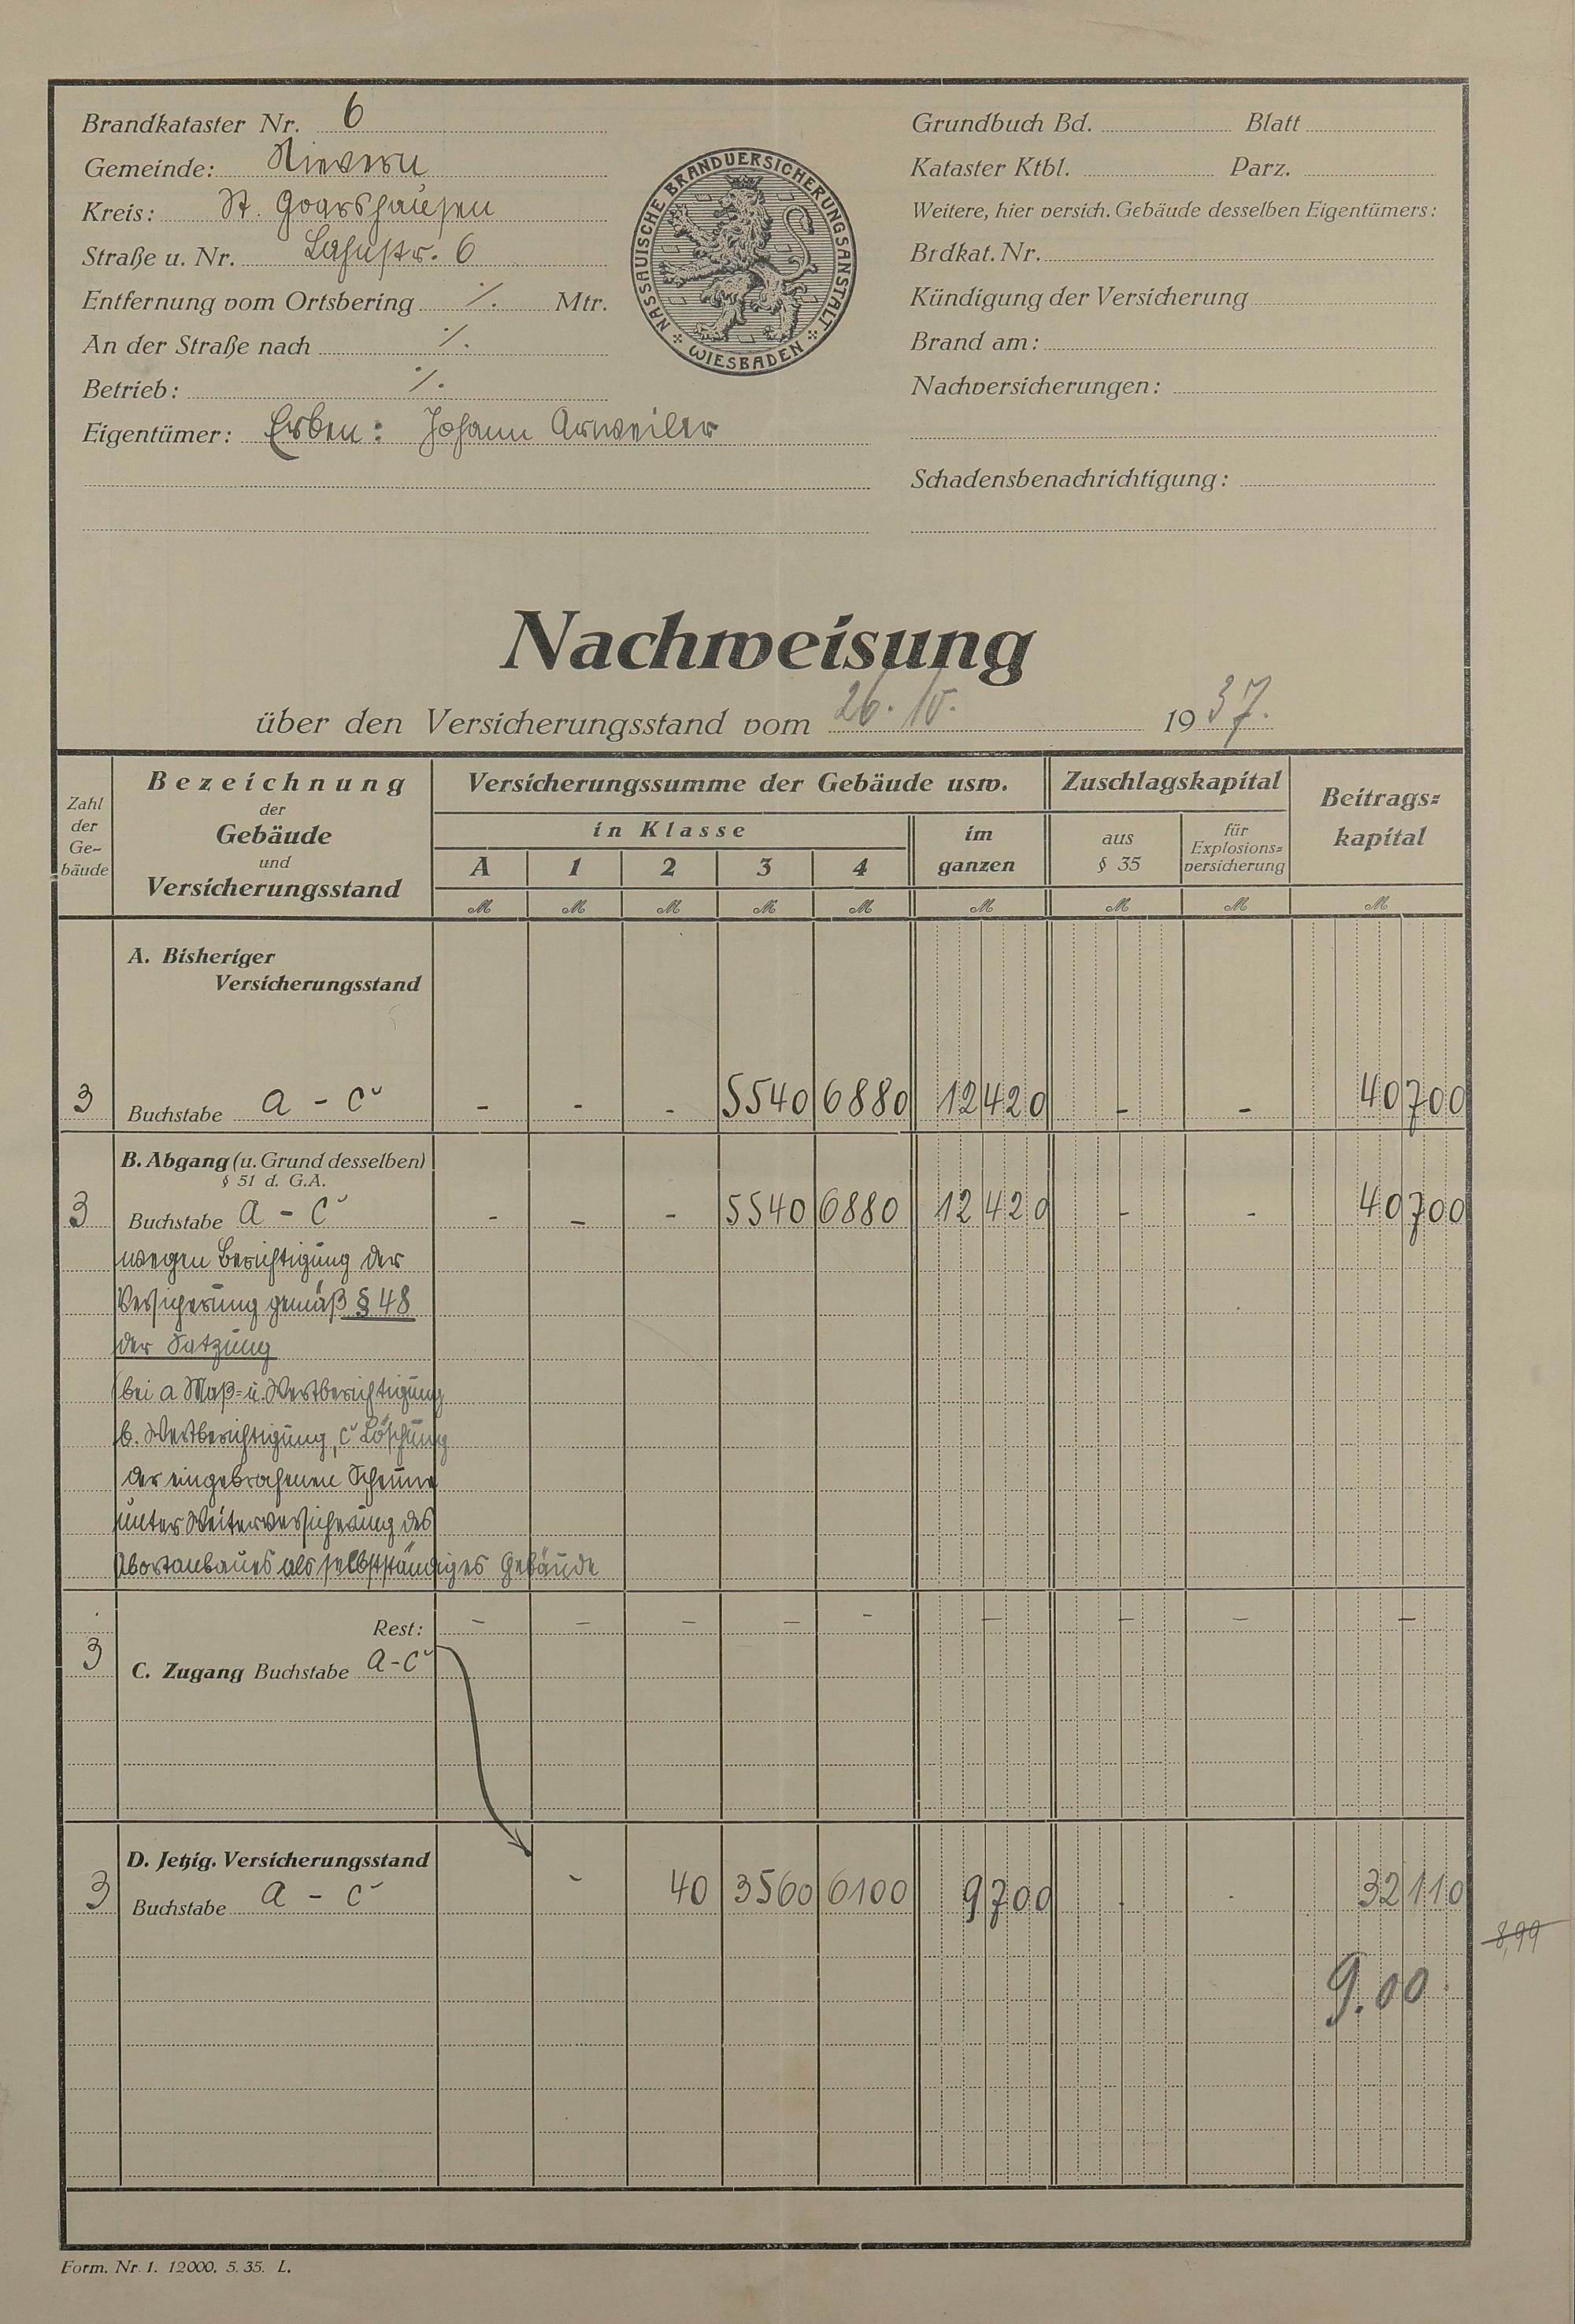 Brandkataster Nr. 6
Gemeinde: Nievern
Kreis: St. Goarshausen
Straße u. Nr. Lahnstr. 6
Entfernung vom Ortsbering ·/. Mtr.
An der Straße nach ·/.
Betrieb: ·/.
Eigentümer: Erben: Johann Arweiler
NASSAUISCHE BRANDVERSICHERUNGSANSTALT
WIESBADEN
Grundbuch Bd. Blatt
Kataster Ktbl. Parz.
Weitere, hier versich. Gebäude desselben Eigentümers:
Brdkat. Nr.
Kündigung der Versicherung
Brand am:
Nachversicherungen:
Schadensbenachrichtigung:
Nachweisung
über den Versicherungsstand vom 26. IV. 1937.
Zahl der Ge-bäude
Bezeichnung
der
Gebäude
und
Versicherungsstand
Versicherungssumme der Gebäude usw.
in Klasse
A 1 2 3 4
im ganzen
Zuschlagskapital
aus § 35
für Explosions=versicherung
Beitrags=kapital
M M M M M M M M M
A. Bisheriger
Versicherungsstand
3 Buchstabe a - c - - - 5540 6880 12420 - - 40700
B. Abgang (u. Grund desselben)
§ 51 d. G.A.
3 Buchstabe a - c - - - 5540 6880 12420 - - 40700
wegen Berichtigung der
Versicherung gemäß § 48
der Satzung
(bei a Maß= u. Wertberichtigung
b. Wertberichtigung, c Löschung
der eingebrochenen Scheune
unter Weiterversicherung des
Abortanbaues als selbstständiges Gebäude
Rest: - - - - - - - - -
3 C. Zugang Buchstabe a-c
D. Jetzig. Versicherungsstand
3 Buchstabe a - c - 40 3560 6100 9700 - - 32110
8,99
9.00
Form. Nr. 1. 12000. 5. 35. L.